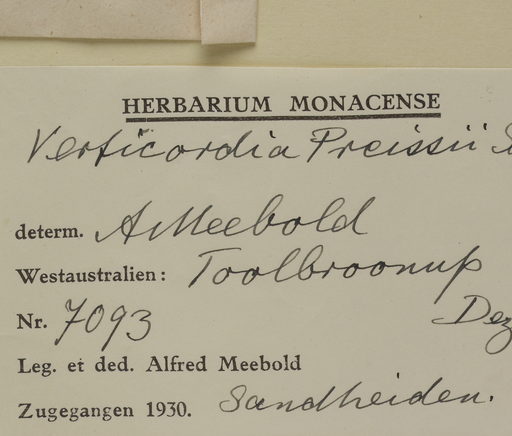 HERBARIUM MONACENSE
Verticordia Preissii
determ. A Meebold
Westaustralien: Toolbroonup
Nr. 7093 Dez
Leg. et ded. Alfred Meebold
Zugegangen 1930. Sandheiden.